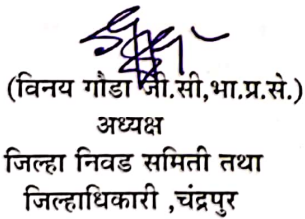 (विनय गौडा जी.सी,भा.प्र.से.)
अध्यक्ष
जिल्हा निवड समिती तथा
जिल्हाधिकारी ,चंद्रपुर